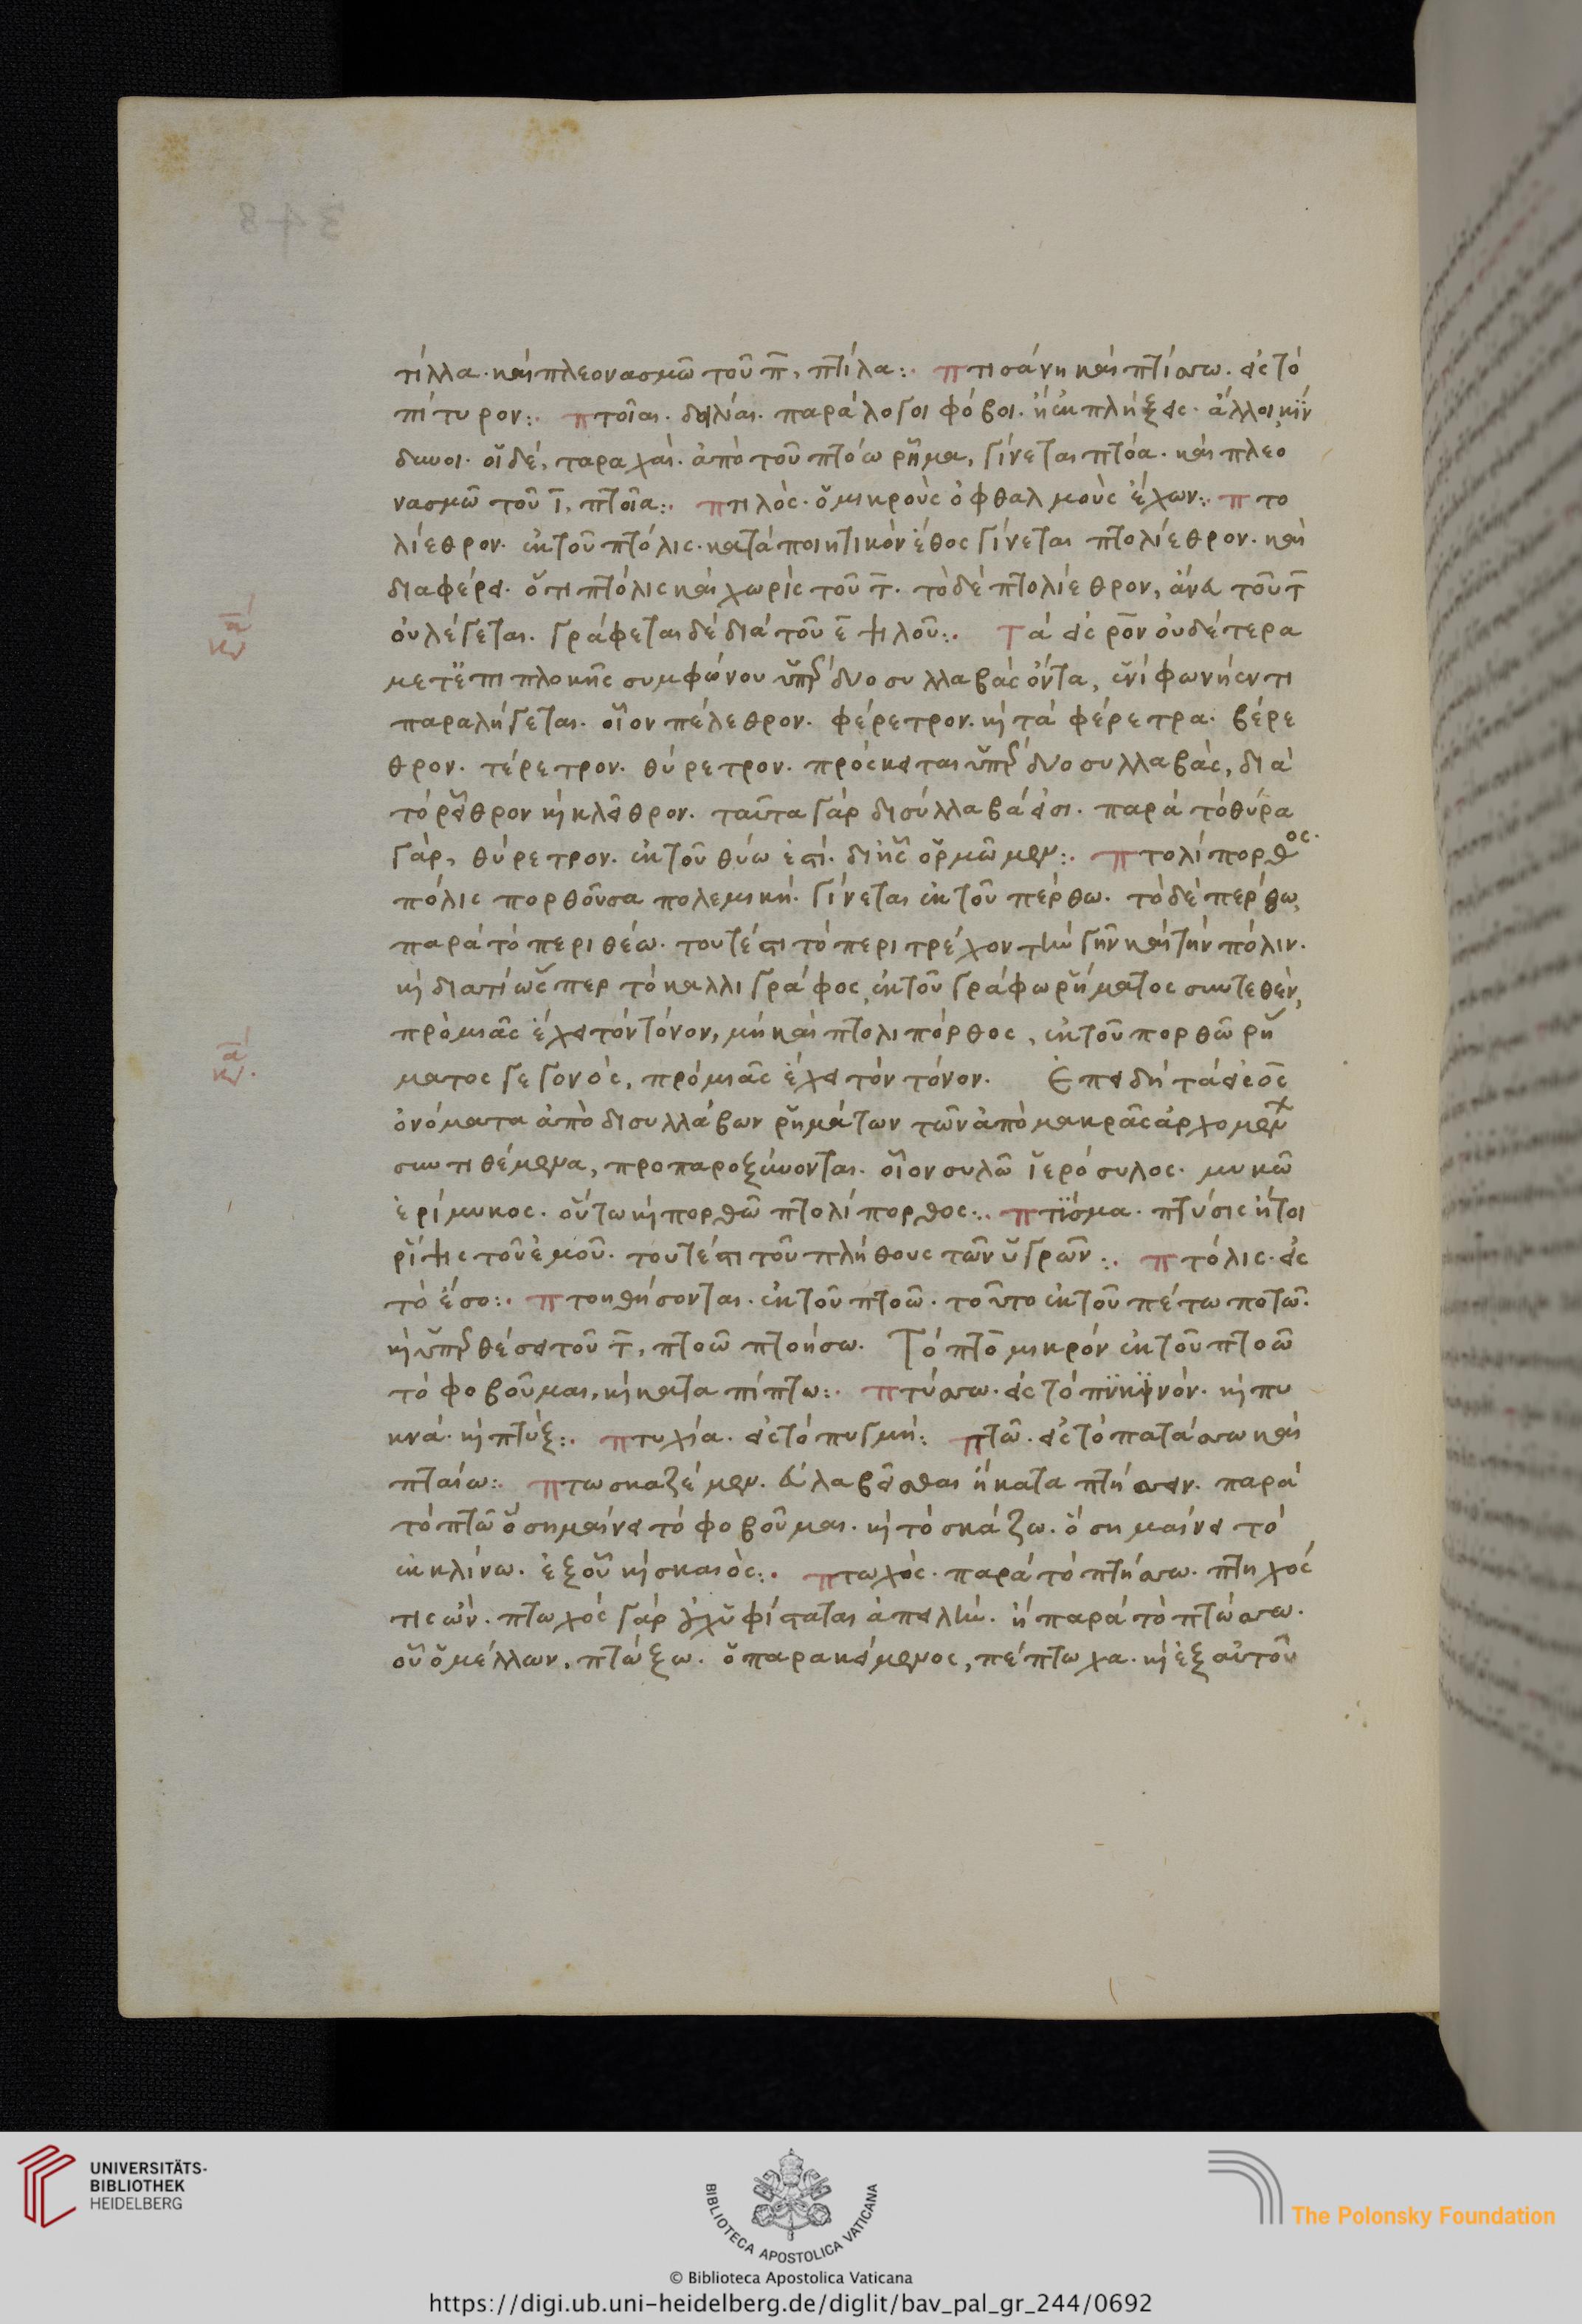 348
τίλλα· καὶ πλεονασμῶ τοῦ π̄, πτίλα:· πτισάνη καὶ πτίσσω· εἰς τὸ
πίτυρον:· πτοῖαι· δειλίαι· παράλογοι φόβοι· ἢ ἐκπλήξεις· ἄλλοι κίν
δυνοι· οἱ δὲ, ταραχαί· ἀπὸ τοῦ πτόω ῥῆμα, γίνεται πτόα· καὶ πλεο
νασμῶ τοῦ ῑ, πτοῖα:· πτιλὸς· ὁ μικροὺς ὀφθαλμοὺς ἔχων:· πτο
λίεθρον· ἐκ τοῦ πτόλις· κατὰ ποιητικὸν ἔθος γίνεται πτολίεθρον· καὶ
διαφέρει· ὅτι πτόλις καὶ χωρὶς τοῦ τ̄· τὸ δὲ πτολίεθρον, ἄνευ τοῦ τ̄
οὐ λέγεται· γράφεται δὲ διὰ τοῦ ε̄ ψιλοῦ:· Τὰ εἰς ρ̄ον οὐδέτερα
μετ' ἐπιπλοκῆς συμφώνου ὑπὲρ δύο συλλαβὰς ὄντα, ἑνὶ φωνήεντι
παραλήγεται· οἷον πέλεθρον· φέρετρον· κ τὰ φέρετρα· βέρε
θρον· τέρετρον· θύρετρον· πρόσκειται ὑπὲρ δύο συλλαβὰς, διὰ
τὸ ῥεῖθρον κ κλεῖθρον· ταῦτα γὰρ δισύλλαβά εἰσι· παρὰ τὸ θύρα
γὰρ, θύρετρον· ἐκ τοῦ θύω ἐστί· δι' ἧς ὁρμῶμεν:· πτολίπορθος·
πόλις πορθοῦσα πολεμική· γίνεται ἐκ τοῦ πέρθω· τὸ δὲ πέρθω,
παρὰ τὸ περιθέω· τουτέστι τὸ περιτρέχον τὴν γῆν καὶ τὴν πόλιν·
κ διατί ὥσπερ τὸ καλλιγράφος, ἐκ τοῦ γράφω ῥήματος συντεθὲν,
πρὸ μιᾶς ἔχει τὸν τόνον, μὴ καὶ πτολιπόρθος, ἐκ τοῦ πορθῶ ῥή
ματος γεγονὸς, πρὸ μιᾶς ἔχει τὸν τόνον· Ἐπειδὴ τὰ εἰς ο̄ς
ὀνόματα ἀπὸ δισυλλάβων ῥημάτων τῶν ἀπὸ μακρᾶς ἀρχομεν
συντιθέμενα, προπαροξύνονται· οἷον συλῶ ἱερόσυλος· μυκῶ
ἐρίμυκος· οὕτω κ πορθῶ πτολίπορθος:· πτῖσμα· πτύσις ἤτοι
ῥίψις τοῦ ἐμοῦ· τουτέστι τοῦ πλήθους τῶν ὑγρῶν:· πτόλις· εἰς
τὸ ἔσο:· πτοηθήσονται· ἐκ τοῦ πτοῶ· τοῦτο ἐκ τοῦ πέτω ποτῶ·
κ ὑπερθέσει τοῦ τ̄, πτοῶ πτοήσω· Τὸ πτο̄ μικρόν ἐκ τοῦ πτοῶ
τὸ φοβοῦμαι, κ καταπίπτω:· πτύσσω· εἰς τὸ πυκινόν· κ πυ
κνά· κ πτύξ:· πτυχία· εἰς τὸ πυγμή: πτῶ· εἰς τὸ πατάσσω καὶ
πταίω:· πτωσκαζέμεν· εὐλαβεῖσθαι ἢ καταπτήσσειν· παρὰ
τὸ πτῶ ὃ σημαίνει τὸ φοβοῦμαι· κ τὸ σκάζω· ὃ σημαίνει τὸ
ἐκκλίνω· ἐξ οὗ κ σκαιὸς:· πτωχὸς· παρὰ τὸ πτήσσω· πτηχός
τις ὤν· πτωχὸς γὰρ οὐχ ὑφίσταται ἀπειλήν· ἢ παρὰ τὸ πτώσσω·
οὗ ὁ μέλλων, πτώξω· ὁ παρακείμενος, πέπτωχα· κ ἐξ αὐτοῦ
UNIVERSITÄTS-
BIBLIOTHEK
HEIDELBERG
BIBLIOTECA APOSTOLICA VATICANA
The Polonsky Foundation
© Biblioteca Apostolica Vaticana
https://digi.ub.uni-heidelberg.de/diglit/bav_pal_gr_244/0692